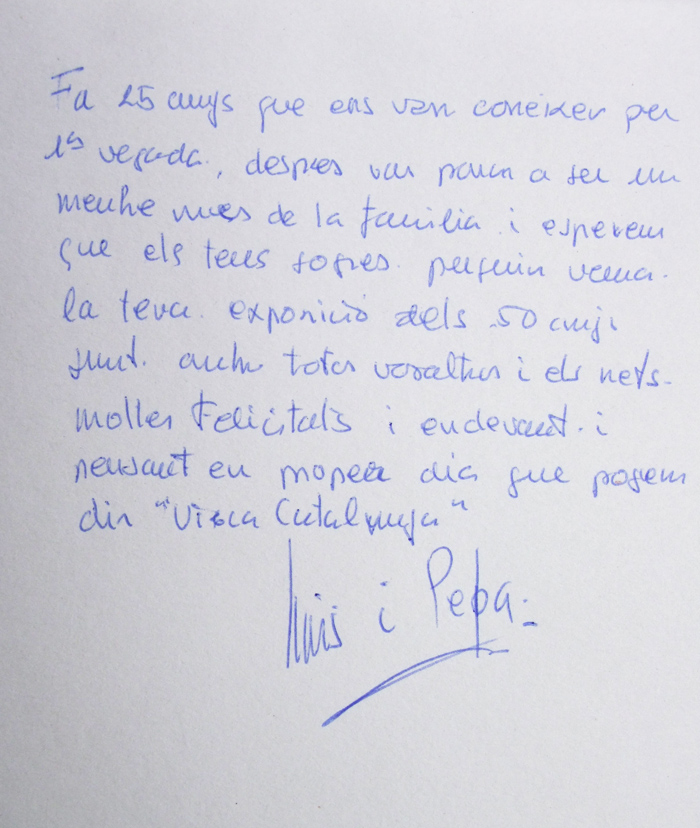 Fa 25 anys que ens van conèixer per
1ª vegada., despres van passar a ser un
membre mes de la familia i esperem
que els teus sogres. puguin veura.
la teva. exposició dels .50 anys
junt. amb totes vosaltres i els nets.
molles Felicitats i endevant. i
pensant en el proper dia que pogem
dir "Visca Catalunya"
Lluis i Pepa.